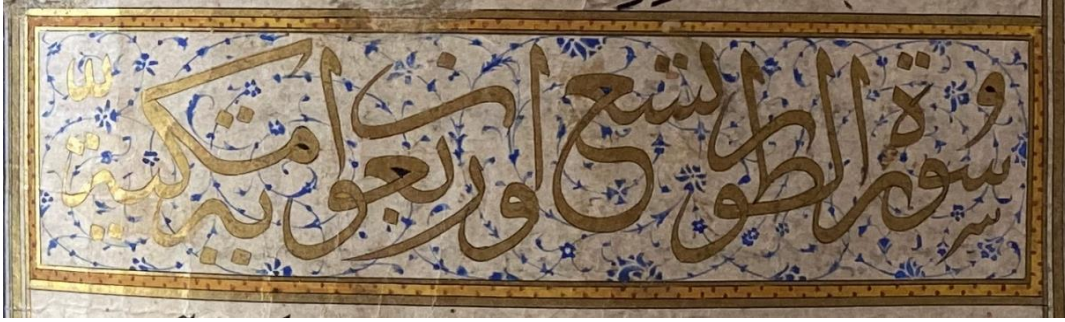 سورة الطور تسع واربعون اية مكية